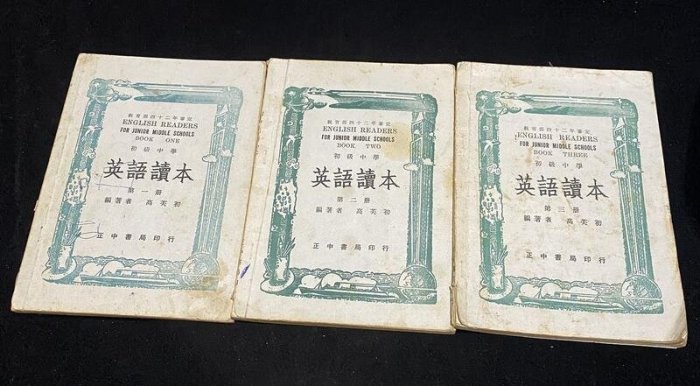 教育部四十二年審定
ENGLISH READERS
FOR JUNIOR MIDDLE SCHOOLS
BOOK ONE
初級中學
英語讀本
第一册
編著者 高芙初
正中書局印行
教育部四十二年審定
ENGLISH READERS
FOR JUNIOR MIDDLE SCHOOLS
BOOK TWO
初級中學
英語讀本
第二册
編著者 高芙初
正中書局印行
教育部四十二年審定
ENGLISH READERS
FOR JUNIOR MIDDLE SCHOOLS
BOOK THREE
初級中學
英語讀本
第三册
編著者 高芙初
正中書局印行